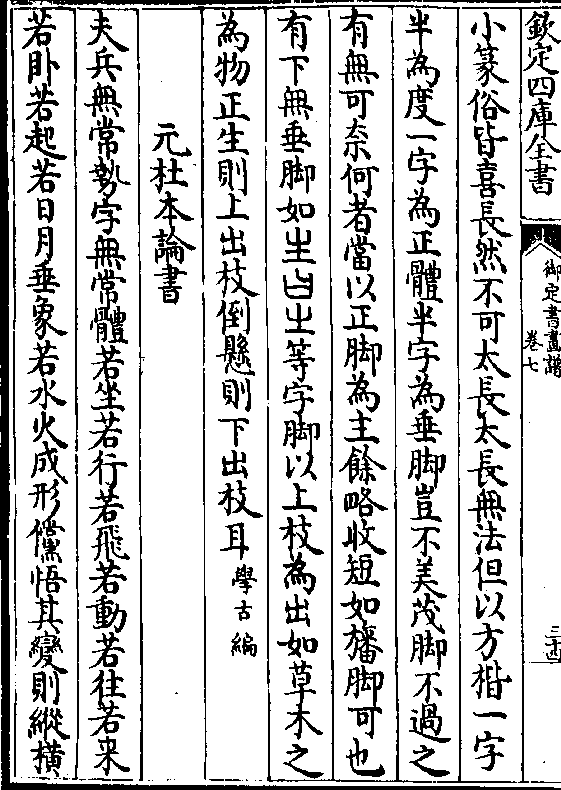 欽定四庫全書
御定書畫譜
卷七
三十四
小篆俗皆喜長然不可太長太長無法但以方楷一字
半為度一字為正體半字為垂脚豈不美茂脚不過之
有無可奈何者當以正脚為主餘略收短如旛脚可也
有下無垂脚如生白㞢等字脚以上枝為出如草木之
為物正生則上出枝倒懸則下出枝耳學古編
元杜本論書
夫兵無常勢字無常體若坐若行若飛若動若往若來
若卧若起若日月垂象若水火成形儻悟其變則縱橫